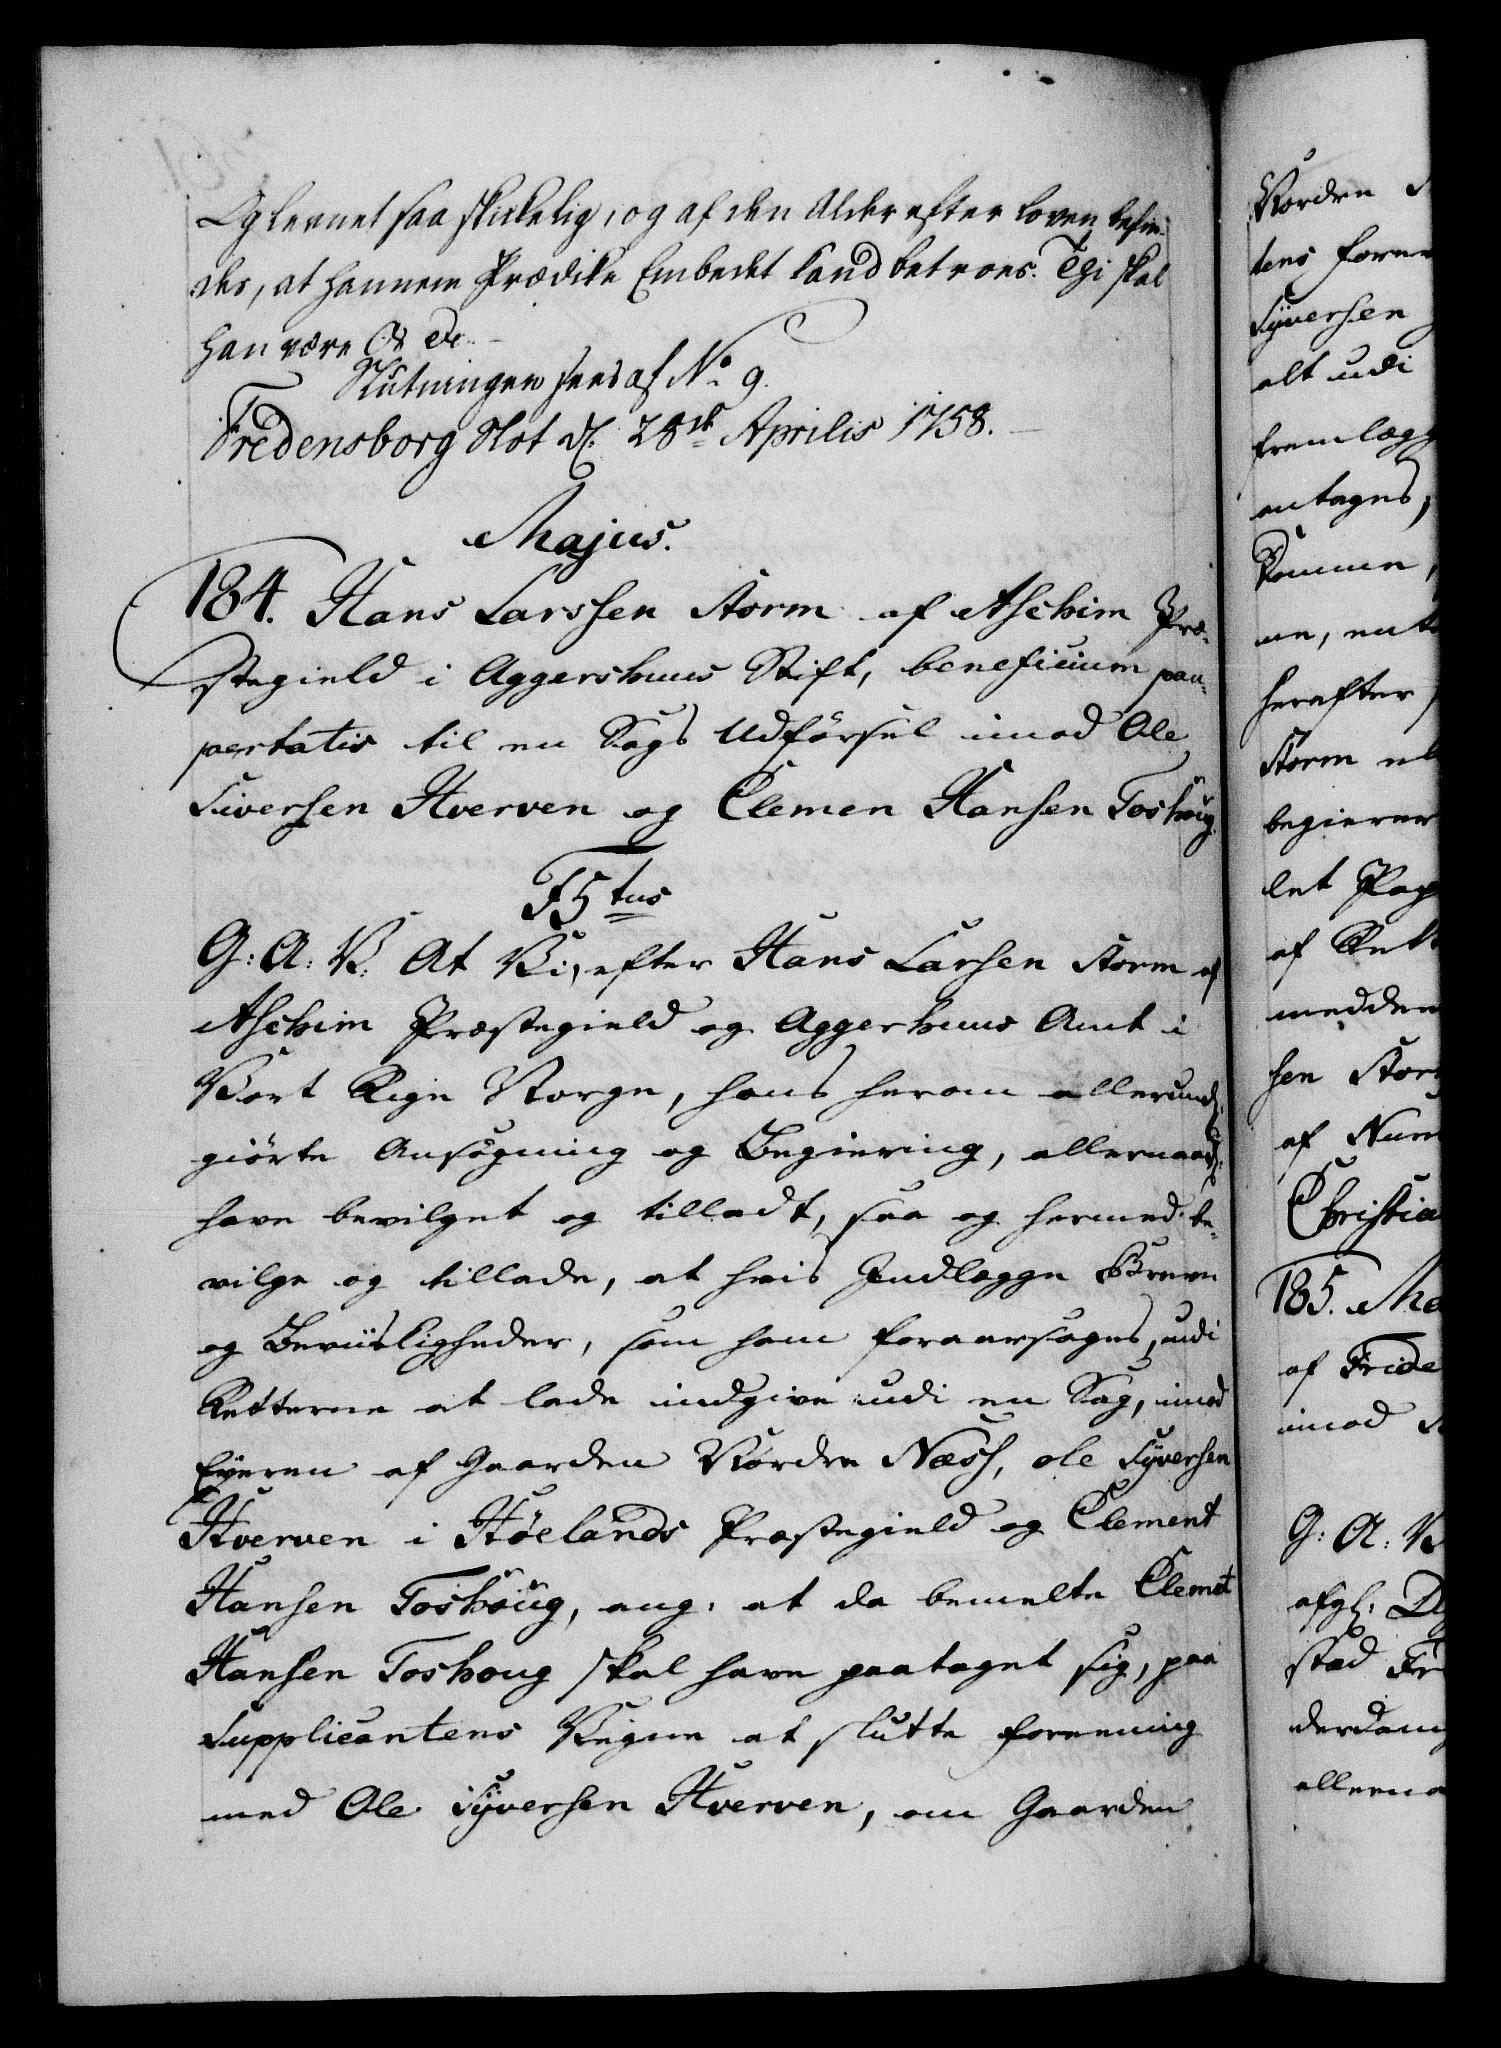 Og levnet saa skikkelig, og af den Alder efter Loven befin-
des, at hannem Prædike Embedet kand betroes. Thi skal
han være &c &c.
Slutningen sees af No 9.
Fredensborg Slot d. 28de Aprilis 1758.
Majus.
184. Hans Larssen Storm af Aschim Præ-
stegield i Aggershuus Stift, beneficium pau-
pertatis til en Sags Udførsel imod Ole
Siversen Hverven og Clemen Hansen Toshoug.
F5tus
G: A: V: At Vi, efter Hans Larsen Storm af
Aschim Præstegield og Aggershuus Amt i
Vort Rige Norge, hans herom allerund:
giørte Ansøgning og Begiering, allernaad:
have bevilget og tilladt, saa og hermed be-
vilge og tillade, at hvis Indlægge Breve
og Beviisligheder, som ham foraarsages, udi
Retterne at lade indgive udi en Sag, imod
Eyeren af Gaarden Nordre Næss, ole Syversen
Hverven i Høelands Præstegield og Clement
Hansen Toshoug, ang: at da bemelte Clemet
Hansen Toshoug skal have paataget sig, paa
Supplicantens Vegne at slutte foreening
med Ole Syversen Hverven, om Gaarden
Nordre
tens
Syversen
alt udi
fremlægg
antages,
Domme,
herefter
Storm
begierer
let Pap
af
medde
sen Stor
af Num
Christia
185. Ma
af Fride
imod
G: A: V
afgl:
stad Fr
derdam
allerna